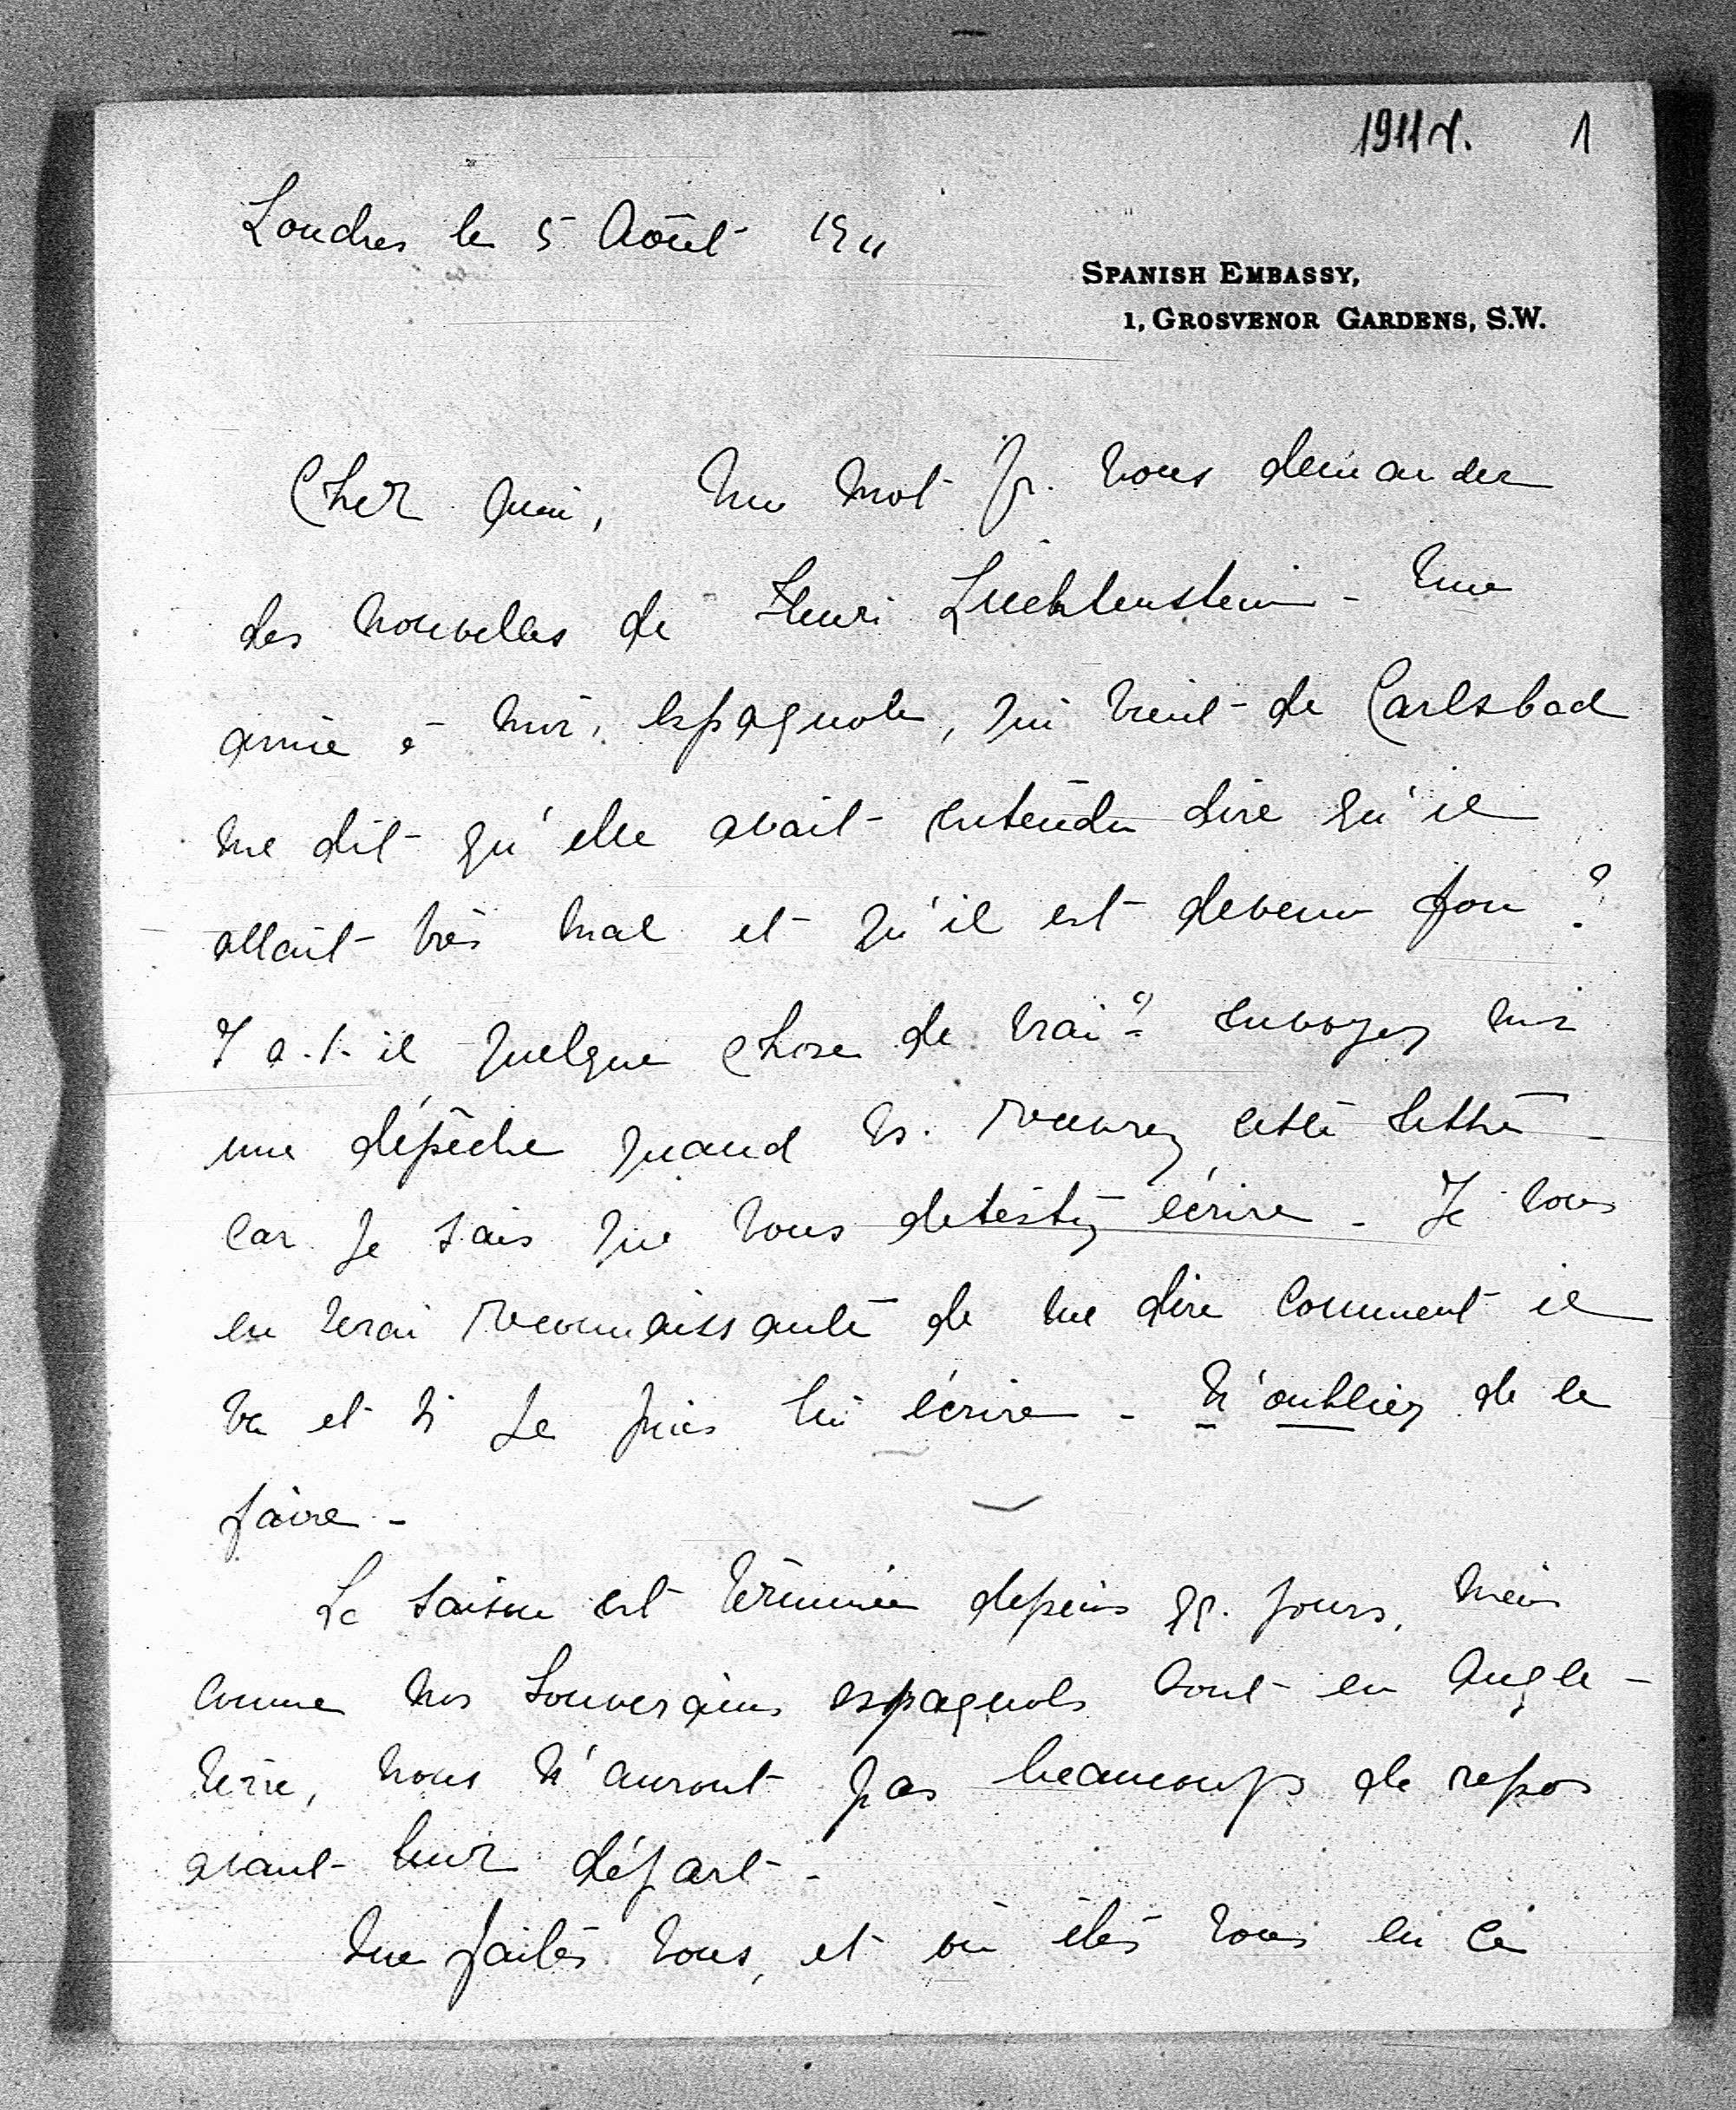 1911 г. 1
Londres le 5 Août 1911
SPANISH EMBASSY,
1, GROSVENOR GARDENS, S.W.
Cher Ami, Un mot pr. vous demander
des nouvelles de Henri Liechtenstein - Une
amie à moi, espagnole, qui vient de Carlsbad
me dit qu'elle avait entendu dire qu'il
allait très mal et qu'il est devenu fou ?
Y a-t-il quelque chose de vrai ? envoyez moi
une dépêche quand vs. recevrez cette lettre -
car je sais que vous detestez écrire - Je vous
en serai reconnaissante de me dire comment il
va et si je puis lui écrire - N'oubliez de le
faire -
La saison est terminée depuis qq. jours, mais
comme nos Souverains espagnols sont en Angle-
terre, nous n'auront pas beaucoups de repos
avant leur départ -
Que faites vous, et où êtes vous en ce